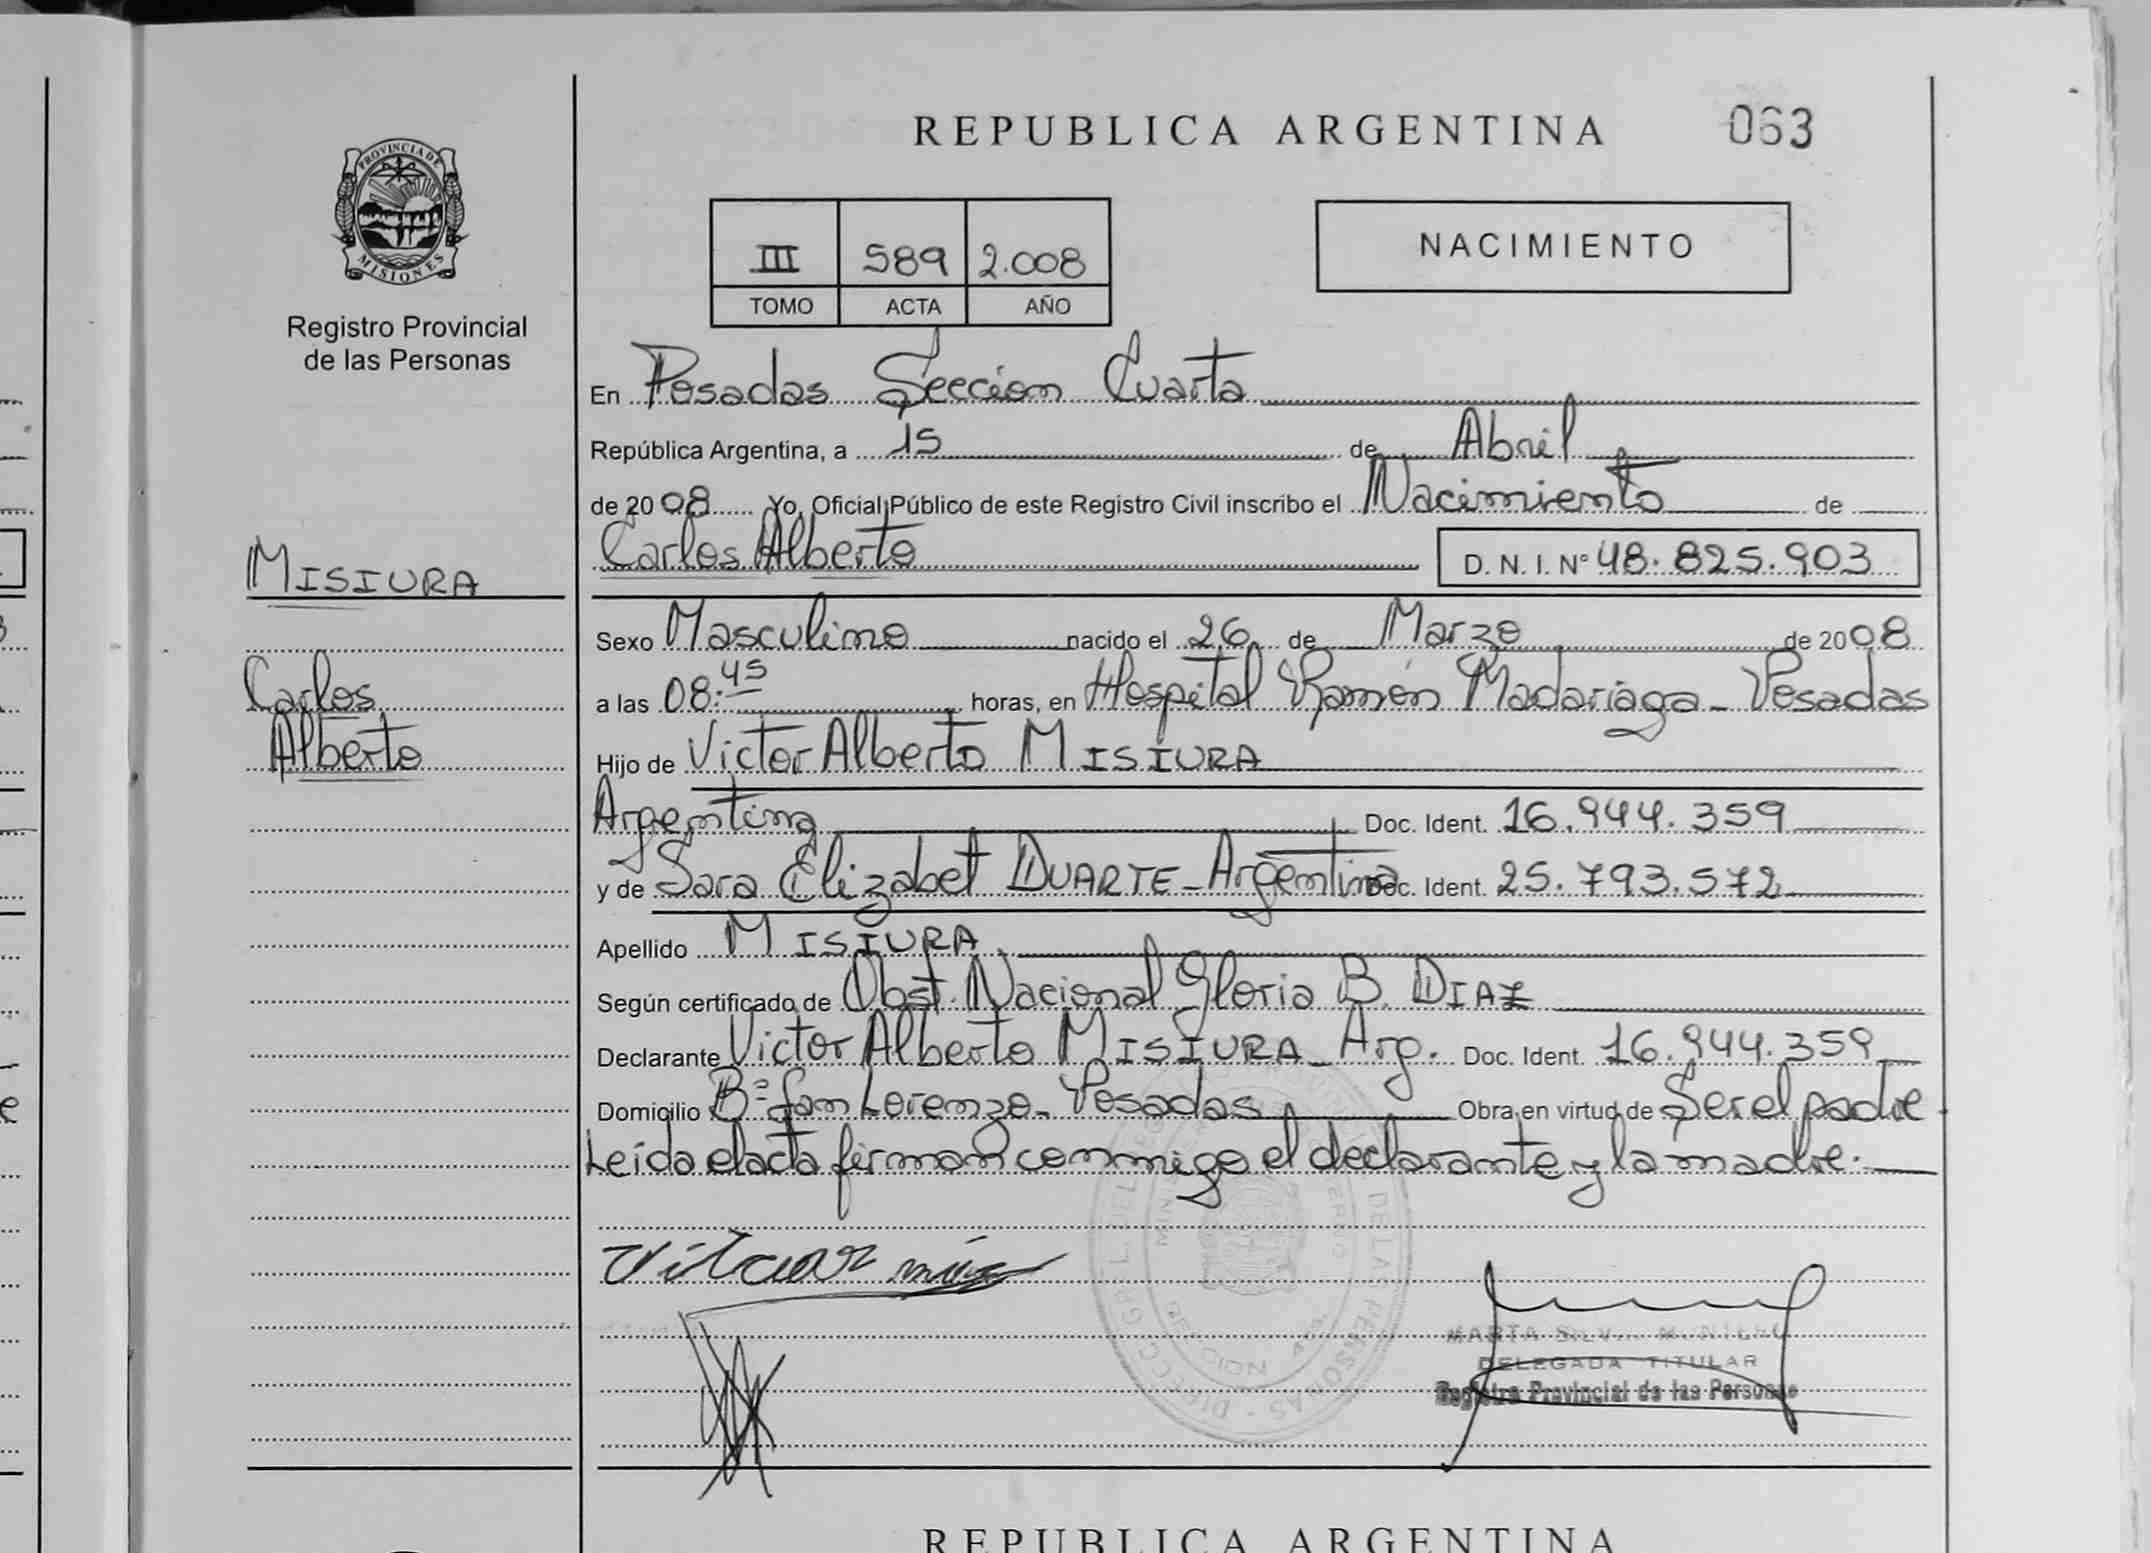 REPUBLICA ARGENTINA 063
PROVINCIA DE
MISIONES
Registro Provincial
de las Personas
III 589 2.008
TOMO ACTA AÑO
NACIMIENTO
En Posadas Sección Cuarta
República Argentina, a 15 de Abril
de 2008 Yo, Oficial Público de este Registro Civil inscribo el Nacimiento de
MISIURA
Carlos Alberto D. N. I. N° 48.825.903
Sexo Masculino nacido el 26 de Marzo de 2008
Carlos
Alberto
a las 08:45 horas, en Hospital Ramón Madariaga - Posadas
Hijo de Victor Alberto MISIURA
Argentina Doc. Ident. 16.944.359
y de Sara Elizabet DUARTE - Argentina Doc. Ident. 25.793.572
Apellido MISIURA
Según certificado de Obst. Nacional Gloria B. DIAZ
Declarante Victor Alberto MISIURA - Arg. Doc. Ident. 16.944.359
Domicilio B° San Lorenzo - Posadas Obra en virtud de Ser el padre
Leída el acta firman conmigo el declarante y la madre.
MARTA
DELEGADA TITULAR
Registro Provincial de las Personas
REPUBLICA ARGENTINA